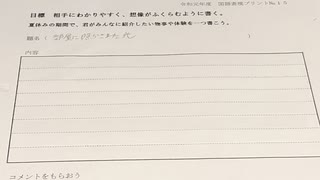 令和元年度 国語表現プリントNo15
目標 相手にわかりやすく、想像がふくらむように書く。
夏休みの期間で、君がみんなに紹介したい物事や体験を一つ書こう。
題名(部屋に
内容
コメントをもらおう